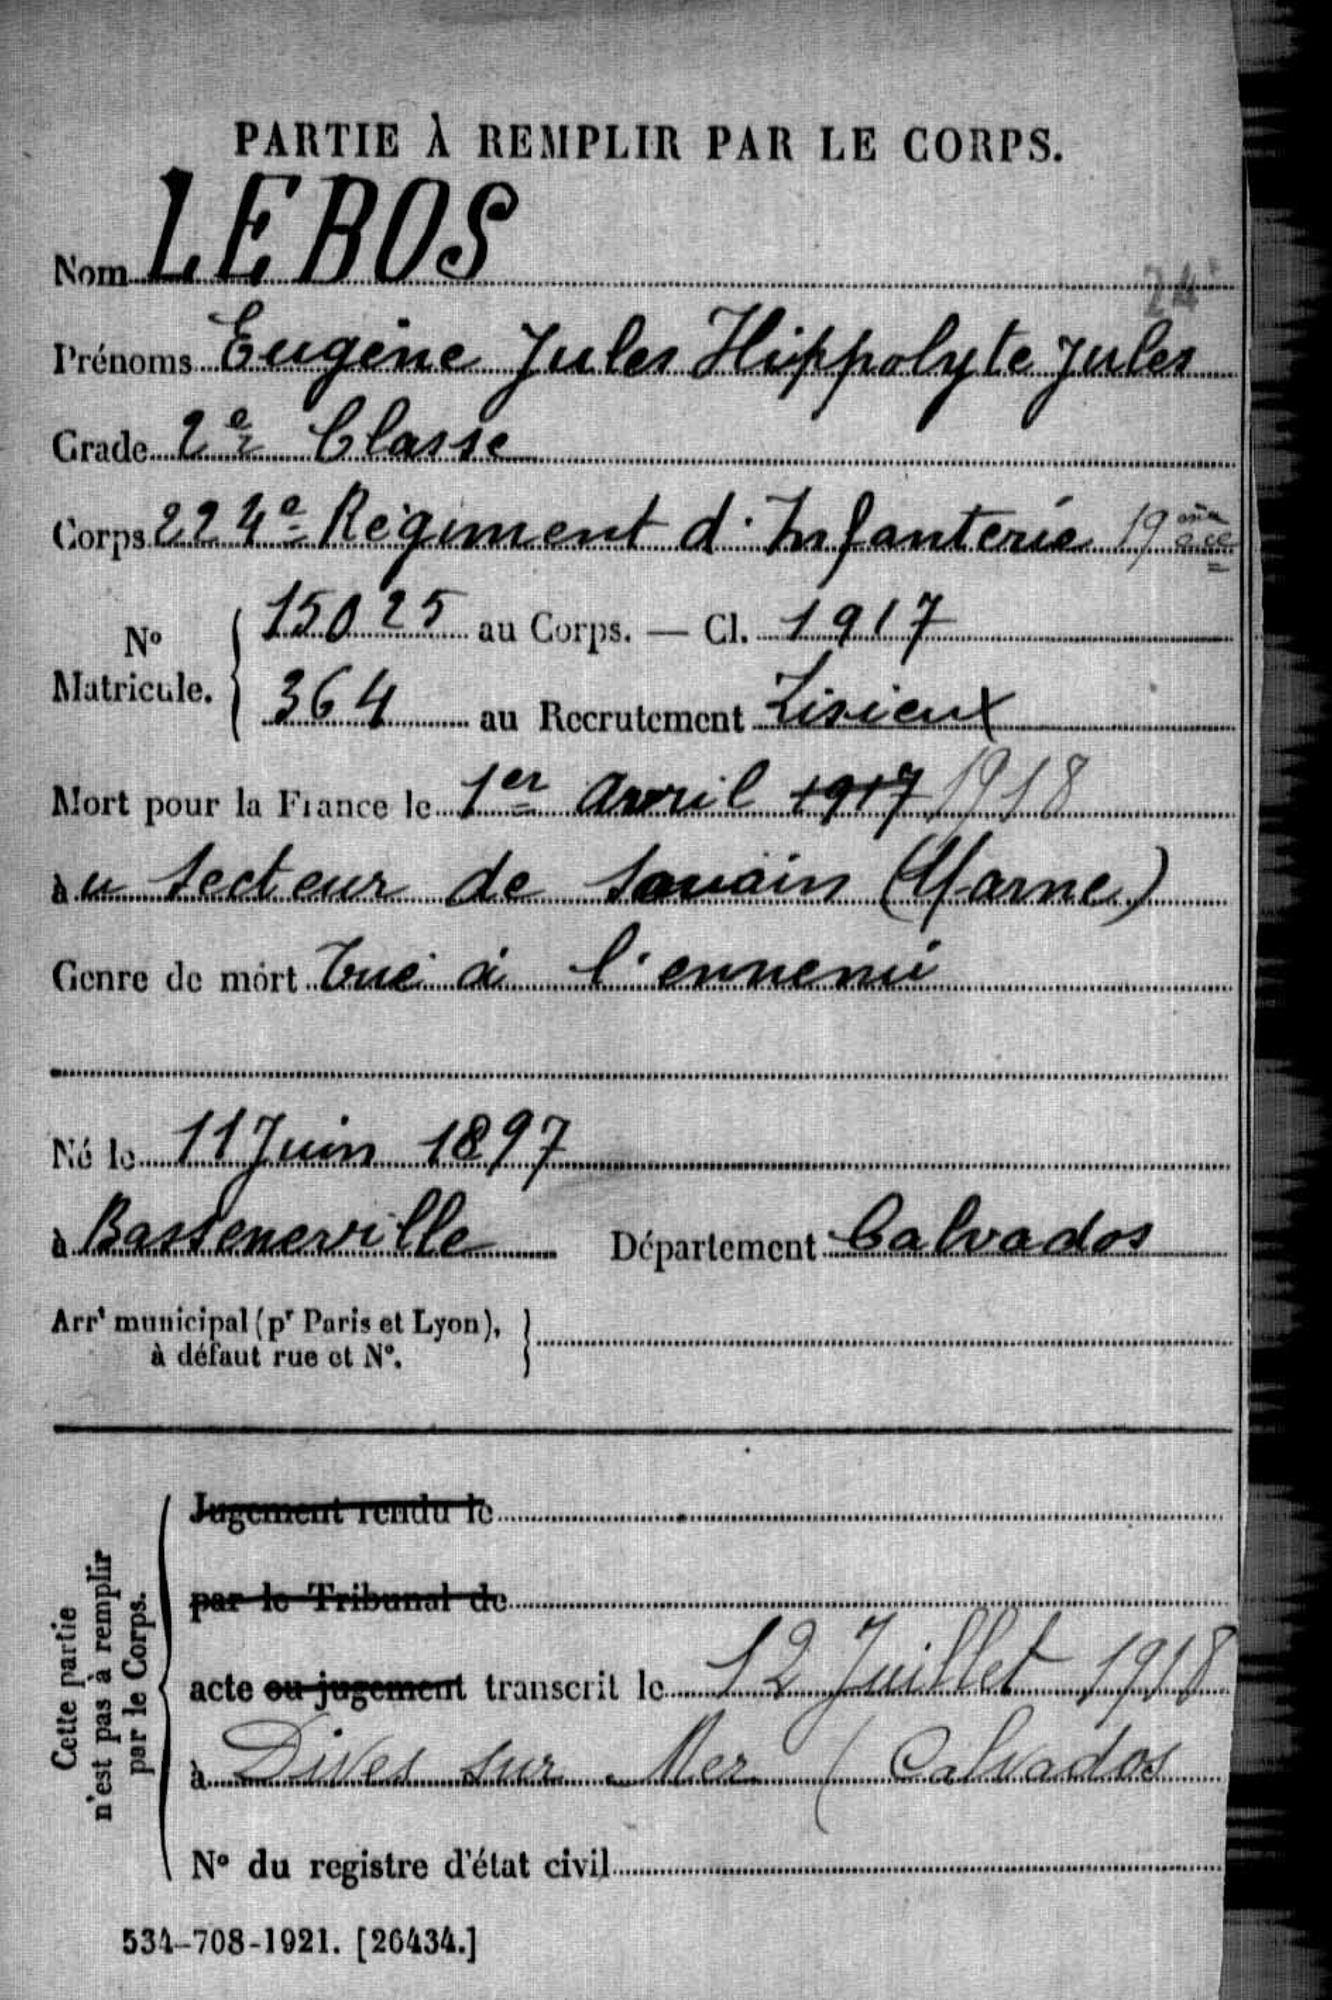 PARTIE À REMPLIR PAR LE CORPS.
Nom LEBOS
24
Prénoms Eugène Jules Hippolyte Jules
Grade 2e Classe
Corps 224e Régiment d'Infanterie 19
N° Matricule. 15025 au Corps. — Cl. 1917
364 au Recrutement Lisieux
Mort pour la France le 1er Avril 1917 1918
au secteur de Souain (Marne)
Genre de mort Tué à l'ennemi
Né le 11 Juin 1897
à Basseneville Département Calvados
Arrt municipal (pr Paris et Lyon),
à défaut rue et N°.
Cette partie
n'est pas à remplir
par le Corps.
Jugement rendu le
par le Tribunal de
acte ou jugement transcrit le 12 Juillet 1918
à Dives sur Mer (Calvados
N° du registre d'état civil
534-708-1921. [26434.]